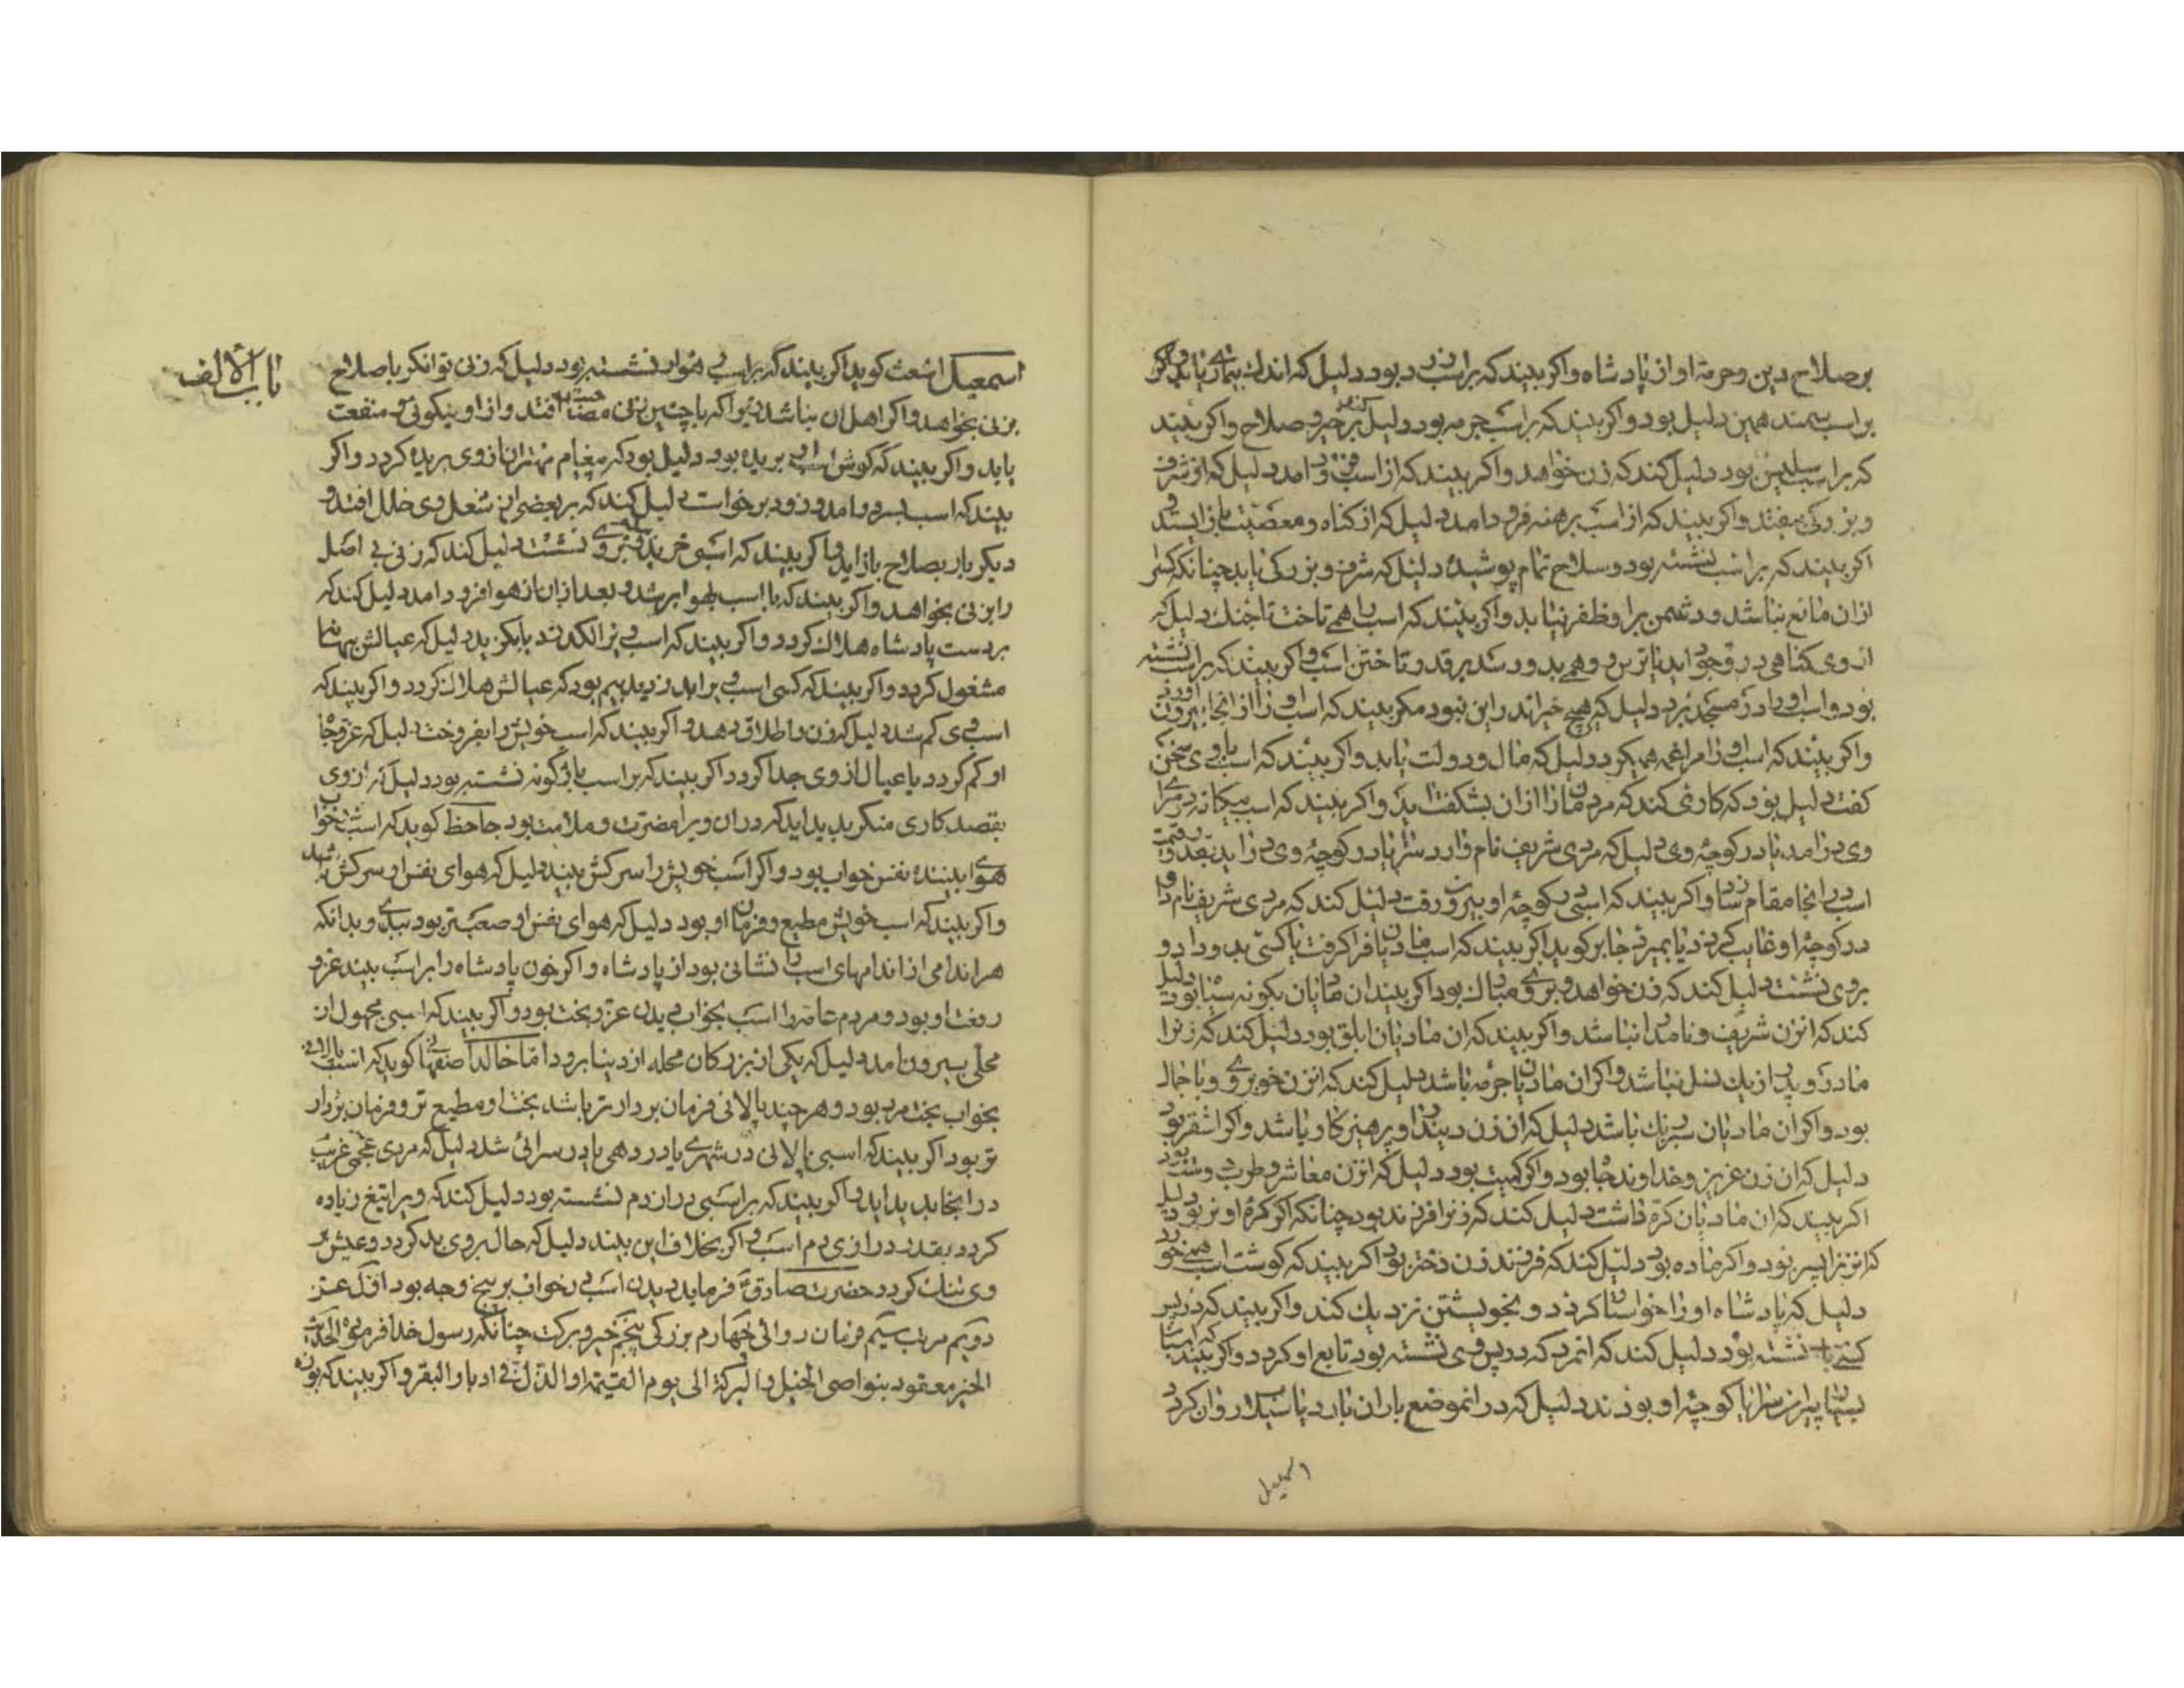 بر صلاح دین و حرمة او از پادشاه و اکر بیند که بر اسب زرد بود دلیل که اندک بیماری یابد و اکر
بر اسب سمند همین دلیل بود و اکر بیند که بر اسب جرمه بود دلیل کند بر خیر و صلاح و اکر بیند
که بر اسب بود دلیل کند که زن خواهد و اکر بیند که از اسب فرود امد دلیل که از شرف
و بزرکی بیفتد و اکر بیند که از اسب برهنه فرود امد دلیل که از کناه و معصیت باز ایستد و
اکر بیند که بر اسب نشسته بود و سلاح تمام پوشیده دلیل که شرف و بزرکی یابد چنانکه کس
از ان مانع نباشد و دشمن برا و ظفر نیابد و اکر بیند که اسب را همی تاخت تا دلیل که
از وی کناهی در وجود اید یا ترس و وهم بدو رسد بر قدر تاختن اسب و اکر بیند که بر اسب نشسته
بود و اسب او را در مسجد برد دلیل که هیچ خیر اندر این نبود مکر بیند که اسب او را از انجا بیرون اورد
و اکر بیند که اسب او را مراغه همیکرد دلیل که مال و دولت یابد و اکر بیند که اسب با وی سخن
کفت دلیل بود که کاری کند که مردمان را از ان شکفت اید و اکر بیند که اسب بیکانه در سرای
وی درامد یا در کوچهٔ وی دلیل که مردی شریف نام دار در سرا یا در کوچهٔ وی دراید بقدر و قیمت
اسب در انجا مقام سازد و اکر بیند که اسبی از کوچهٔ او بیرون رفت دلیل کند که مردی شریف نام دار
در کوچهٔ او غایب کردد یا بمیرد جابر کوید اکر بیند که اسب مادیان فرا کرفت یا کسی بدو داد و
بر وی نشست دلیل کند که زن خواهد و بر وی مبارک بود اکر بیند ان مادیان بکونه سیاه بود دلیل
کند که ان زن شریف و نامدار نباشد و اکر بیند که ان مادیان ابلق بود دلیل کند که زن را
مادر و پدر از یک نسل نباشد و اکر ان مادیان جرمه باشد دلیل کند که ان زن خوبروی و با جمال
بود و اکر ان مادیان سبز رنک باشد دلیل که ان زن دیندار و پرهیزکار باشد و اکر اشقر بود
دلیل که ان زن عزیز و خداوند جاه بود و اکر کمیت بود دلیل که ان زن معاشر و طرب دوست بود
اکر بیند که ان مادیان کره داشت دلیل کند که زن را فرزند بود چنانکه اکر کرهٔ او نر بود دلیل
که ان زن را پسر بود و اکر ماده بود دلیل کند که فرزند زن دختر بود اکر بیند که کوشت اسب همی خورد
دلیل که پادشاه او را خواستار کردد و بخویشتن نزدیک کند و اکر بیند که در پس
کسی نشسته بود دلیل کند که انمرد که در پس وی نشسته بود تابع او کردد و اکر بیند که اسبان
بسیار پیرامن سرای یا کوچهٔ او بودند دلیل که در انموضع باران بارد یا سیلاب روان کردد
اسمعیل
باب الالف
اسمعیل اشعث کوید اکر بیند که بر اسب هموار نشسته بود دلیل که زنی توانکر با صلاح
بزنی بخواهد و اکر اهل ان نباشد بود که با چنین زنی افتد و از او نیکوئی و منفعت
یابد و اکر بیند که کوش اسب وی بریده بود دلیل بود که پیغام مهتران از وی بریده کردد و اکر
بیند که اسب بسر درامد و زود برخواست دلیل کند که بر بعضی از شغل وی خلل افتد و
دیکر بار بصلاح باز اید و اکر بیند که اسبی خرید و بر وی نشست دلیل کند که زنی بی اصل
را بزنی بخواهد و اکر بیند که با اسب بهوا بر شد و بعد از ان از هوا فرود امد دلیل کند که
بر دست پادشاه هلاک کردد و اکر بیند که اسب وی را لکد زد یا بکزید دلیل که عیالش بهمانا
مشغول کردد و اکر بیند که کسی اسب ویرا بدزدید بیم بود که عیالش هلاک کردد و اکر بیند که
اسب وی کم شد دلیل که زن را طلاق دهد و اکر بیند که اسب خویش را بفروخت دلیل که عز و جاه
او کم کردد یا عیال از وی جدا کردد اکر بیند که بر اسب باژکونه نشسته بود دلیل که از وی
بقصد کاری منکر پدید اید که در ان ویرا مضرت و ملامت بود جاحظ کوید که اسب بخواب
هوای بیننده نفس خواب بود و اکر اسب خویش را سرکش بیند دلیل که هوای نفس او سرکش باشد
و اکر بیند که اسب خویش مطیع و فرمان او بود دلیل که هوای نفس او بود و بدانکه
هر اندامی از اندامهای اسب را نشانی بود از پادشاه و اکر خون پادشاه را بر اسب بیند عز و
رفعت او بود و مردم عامه را اسب بخواب دیدن عز و بخت بود و اکر بیند که اسبی مجهول از
محلی بیرون امد دلیل که یکی از بزرکان محله از دنیا برود اما خالد اصفهانی کوید که اسب پالانی
بخواب بخت مرد بود و هر چند پالانی فرمان بردارتر باشد بخت او مطیع تر و فرمان بردار
تر بود اکر بیند که اسبی پالانی در شهری یا در دهی یا در سرائی شد دلیل که مردی عجمی غریب
در انجا پدید اید و اکر بیند که بر اسبی دراز دم نشسته بود دلیل کند که ویرا تبع زیاده
کردد بقدر درازی دم اسب و اکر بخلاف این بیند دلیل که حال بر وی بد کردد و عیش بر
وی تنک کردد حضرت صادق ع فرماید دیدن اسب در خواب بر پنج وجه بود اول عز
دویم مرتبت سیم فرمان روائی چهارم بزرکی پنجم خیر و برکت چنانکه رسول خدا فرموده الحدیث
الخیر معقود بنواصی الخیل و البرکة الی یوم القیمة و الذل فی ادبار البقر و اکر بیند که بوزنه